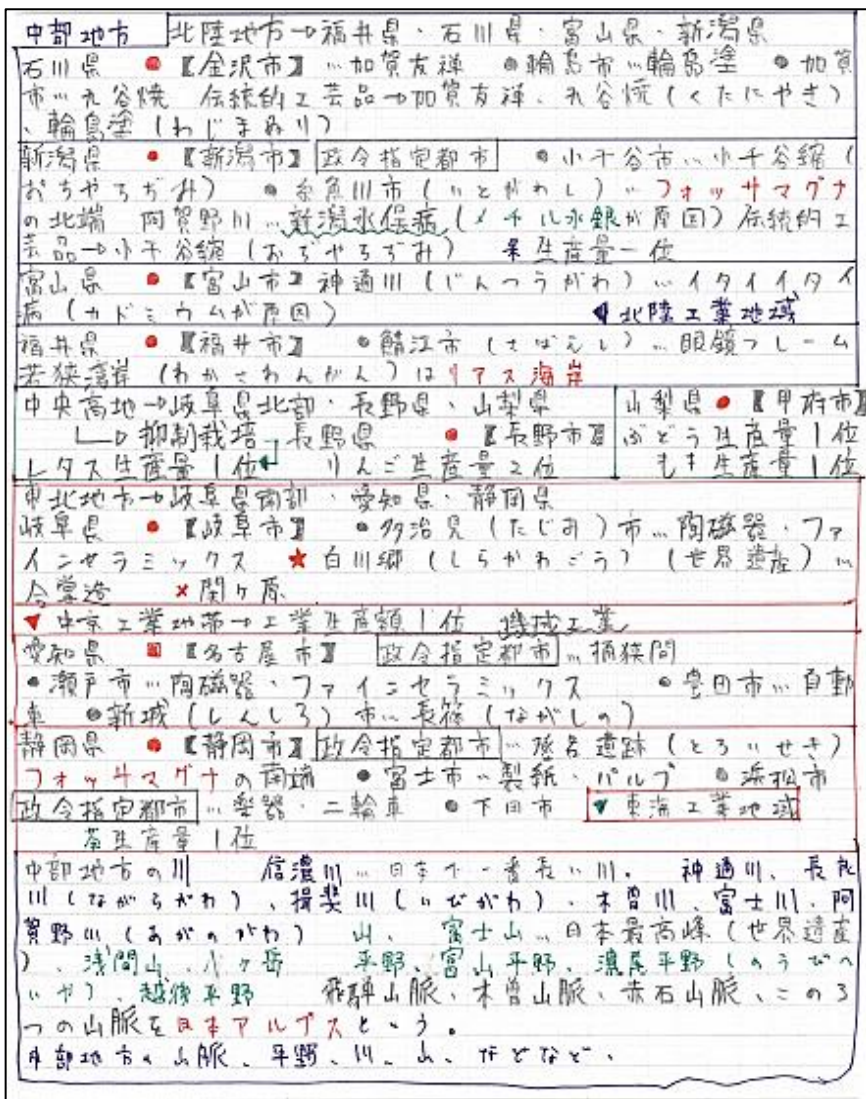 中部地方 北陸地方→福井県・石川県・富山県・新潟県
石川県 ●【金沢市】…加賀友禅 ●輪島市…輪島塗 ●加賀
市…九谷焼 伝統的工芸品→加賀友禅、九谷焼(くたにやき)
、輪島塗(わじまぬり)
新潟県 ●【新潟市】政令指定都市 ●小千谷市…小千谷縮(
おぢやちぢみ) ●糸魚川市(いとがわし)…フォッサマグナ
の北端 阿賀野川…新潟水俣病(メチル水銀が原因)伝統的工
芸品→小千谷縮(おぢやちぢみ) 米生産量一位
富山県 ●【富山市】神通川(じんつうがわ)…イタイイタイ
病(カドミウムが原因) 北陸工業地域
福井県 ●【福井市】 ●鯖江市(さばえし)…眼鏡フレーム
若狭湾岸(わかさわんがん)はリアス海岸
中央高地→岐阜県北部・長野県・山梨県
山梨県●【甲府市】
→抑制栽培 長野県 ●【長野市】
ぶどう生産量1位
レタス生産量1位 りんご生産量2位
もも生産量1位
東北地方→岐阜県南部・愛知県・静岡県
岐阜県 ●【岐阜市】 ●多治見(たじみ)市…陶磁器・ファ
インセラミックス ★白川郷(しらかわごう)(世界遺産)…
合掌造 ×関ヶ原
▼中京工業地帯→工業生産額1位 機械工業
愛知県 【名古屋市】 政令指定都市…桶狭間
●瀬戸市…陶磁器・ファインセラミックス ●豊田市…自動
車 ●新城(しんしろ)市…長篠(ながしの)
静岡県 ●【静岡市】政令指定都市…登呂遺跡(とろいせき)
フォッサマグナの南端 ●富士市…製紙・パルプ ●浜松市
政令指定都市…楽器・二輪車 ●下田市 ▼東海工業地域
茶生産量1位
中部地方の川 信濃川…日本で一番長い川。 神通川、長良
川(ながらがわ)、揖斐川(いびがわ)、木曽川、富士川、阿
賀野川(あがのがわ) 山、富士山…日本最高峰(世界遺産
)、浅間山、八ヶ岳 平野、富山平野、濃尾平野(のうびへ
いや)、越後平野 飛騨山脈、木曽山脈、赤石山脈、この3
つの山脈を日本アルプスという。
中部地方の山脈、平野、川、山、などなど、